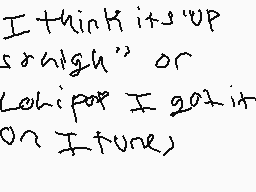 I think its "up
sraigh" or
Lolipop I got it
on Itunes